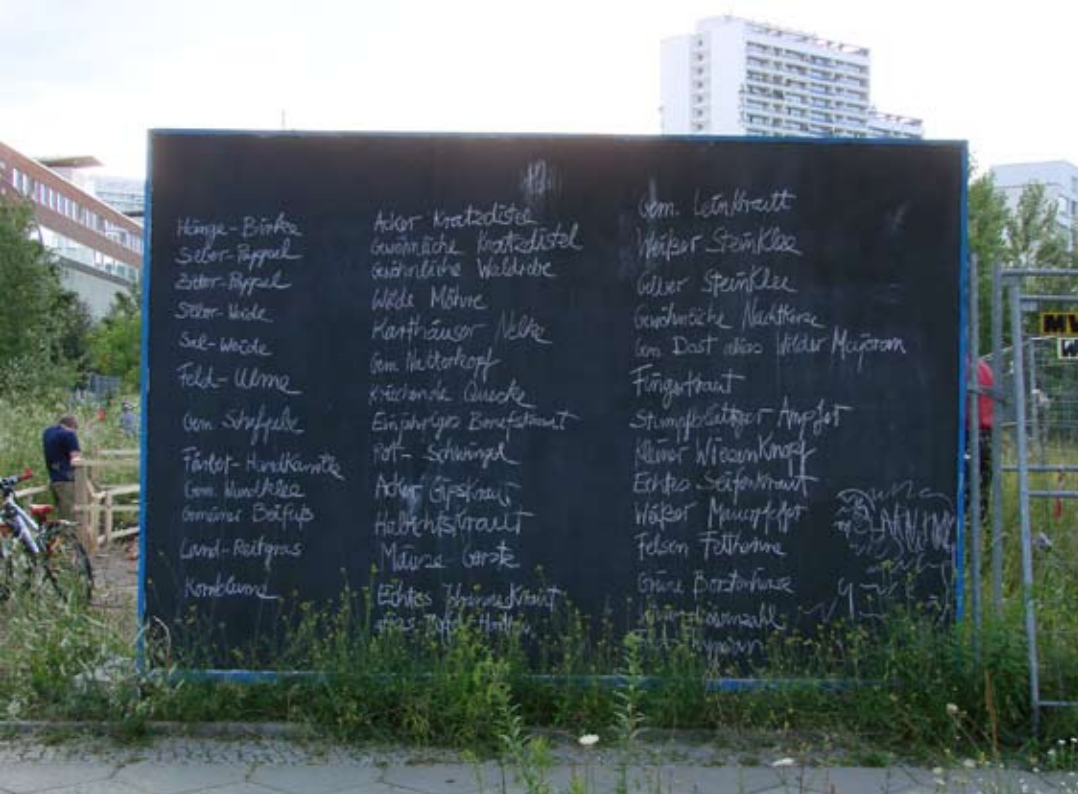 Hänge-Birke
Silber-Pappel
Zitter-Pappel
Silber-Weide
Sal-Weide
Feld-Ulme
Gem. Schafgabe
Färber-Hundskamille
Gem. Wundklee
Gemeiner Beifuß
Land-Reitgras
Kornblume
Acker Kratzdistel
Gewöhnliche Kratzdistel
Gewöhnliche Waldrebe
Wilde Möhre
Karthäuser Nelke
Gem Natterkopf
Kriechende Quecke
Einjähriges
Rot-Schwingel
Acker Gipskraut
Habichtskraut
Mäuse Gerste
Echtes Johanniskraut
alias
Gem. Leinkraut
Weißer Steinklee
Gelber Steinklee
Gewöhnliche Nachtkerze
Gem Dost alias Wilder Majoram
Fingerkraut
Stumpfblättriger Ampfer
Kleiner WiesenKnopf
Echtes Seifenkraut
Weißer Mauerpfeffer
Felsen Fetthenne
Grüne Borstenhirse
MV
W